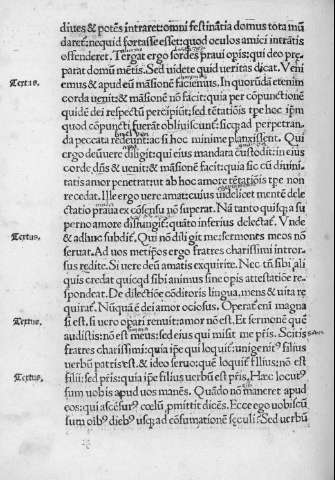 diues & potẽs intraret: omni festinãtia domus tota mũ
daret: nequid fortasse esset: quod oculos amici intrãtis
offenderet. Tergat ergo sordes praui opis: qui deo pre
parat domũ mẽtis. Sed uidete quid ueritas dicat. Veni
Textus. emus & apud eũ mãsionẽ faciemus. In quorũdã etenim
corda uenit: & mãsionẽ nõ facit: quia per cõpunctionẽ
quidẽ dei respectũ percipiũt: sed tẽtatiõis tpe hoc ipm
quod cõpuncti fuerãt obliuiscunt: sicq; ad perpetran
da peccata redeunt: ac si hoc minime planxissent. Qui
ergo deũ uere diligit: qui eius mandata custodit: in eius
corde dñs & uenit: & mãsionẽ facit: quia sic eũ diuini
tatis amor penetrat: ut ab hoc amore tẽtatiõis tpe non
recedat. Ille ergo uere amat: cuius uidelicet mentẽ dele
ctatio praua ex cõsensu nõ superat. Nã tanto quisq; a su
perno amore disiungit: quãto inferius delectat. Vnde
Textus. & adhuc subdit. Qui nõ diligit me: sermones meos nõ
seruat. Ad uos metipsos ergo fratres charissimi intror-
sus redite. Si uere deũ amatis exquirite. Nec tñ sibi ali
quis credat quicqd sibi animus sine opis attestatiõe re-
spondeat. De dilectiõe cõditoris lingua, mens & uita re
quirat. Nũquã ẽ dei amor ociosus. Operat eni magna
Textus. si est. si uero opari renuit: amor nõ est. Et sermonẽ quẽ
audistis: nõ est meus: sed eius qui misit me pris. Scitis
fratres charissimi: quia ipe qui loquit: unigenit9 filius
uerbũ patris est. & ideo seruo: quẽ loquit filius: nõ est
Textus. filii: sed pris: quia ipe filius uerbũ est pris. Hæc locut9
sum uobis apud uos manẽs. Quãdo nõ maneret apud
eos: qui ascẽsur9 cœlũ pmittit dicẽs. Ecce ego uobiscũ
sum oib9 dieb9 usq; ad cõsumationẽ seculi? Sed uerbũ